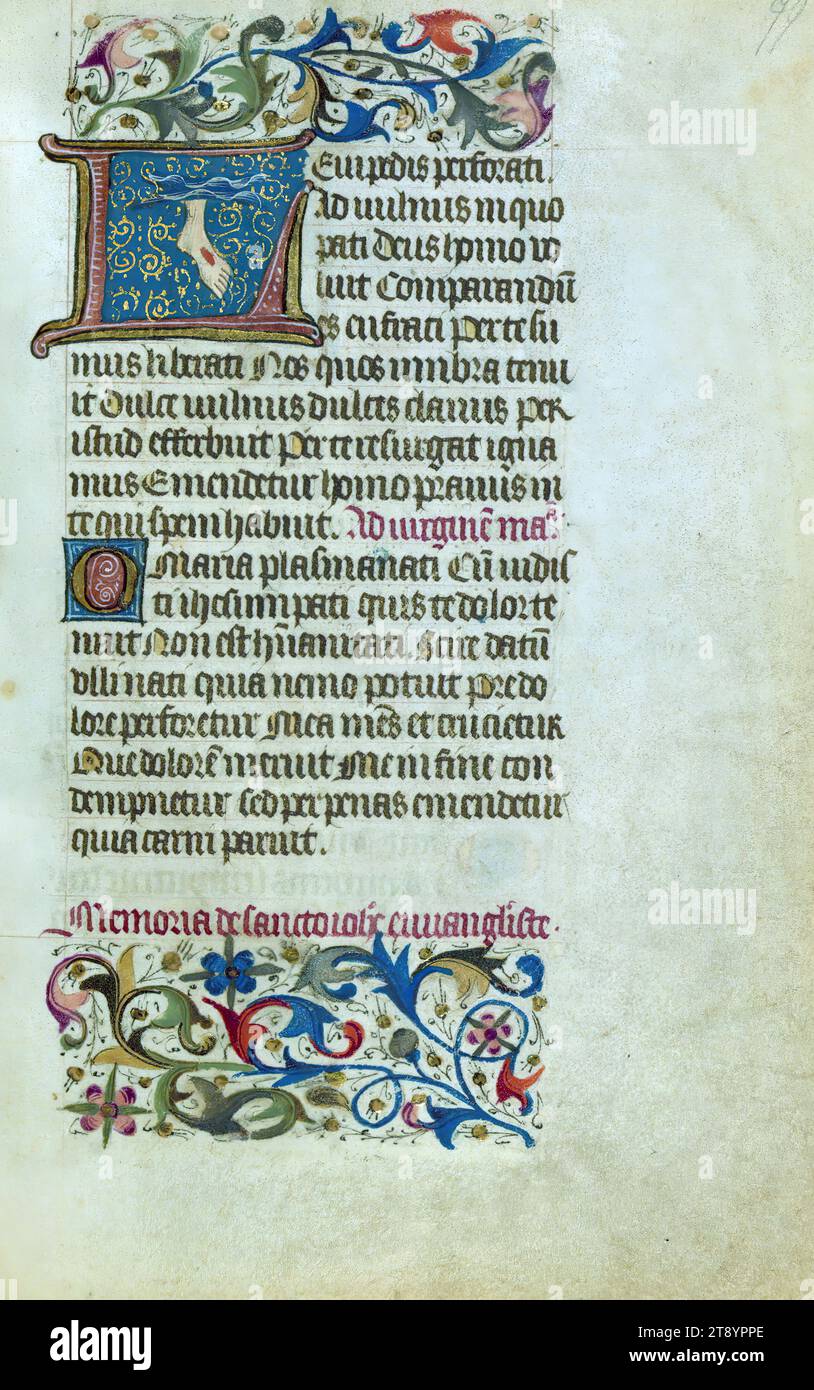 99
LEui pedis perforati.
Ad uulnus in quo
pati Deus homo uo
luit Comparandū
es cufrati per te su
mus liberati Nos quos umbra tenu
it Dulce uulnus dulcis clauus per
istud efferbuit per te resurgat igna
mus Emendetur homo prauus in
te qui spem habuit. Ad uirginē ma
O Maria plasmanati Cū uidis
ti ihesum pati quis te dolor te
nuit Non est hūanitati. Scire datū
Vlli nati quia nemo potuit pre do
lore perforetur Mea mēs et crucietur
Que dolorē meruit Me in fine con
dempnetur sed per penas emendetur
quia carni paruit.
Memoria de sancto iohe euuangliste.
alamy
alamy
alamy
Image ID: 2T8YPPE
www.alamy.com